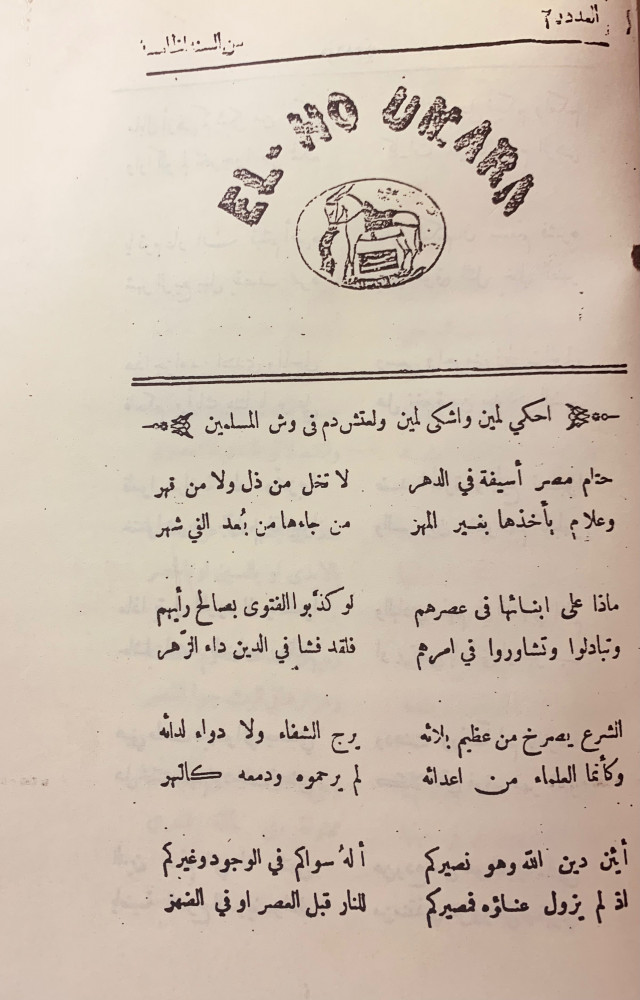 العدد ٦
من السنة الخامسة
EL-HO UMARA
احكي لمين واشكى لمين ولعتش دم فى وش المسلمين
حتام مصر أسيفة في الدهر لا تخل من ذل ولا من قهر
وعلام يأخذها بغير المهر من جاءها من بُعد الفي شهر
ماذا على ابنائها فى عصرهم لو كذبوا الفتوى بصالح رأيهم
وتبادلوا وتشاوروا في امرهم فلقد فشا في الدين داء الزهر
الشرع يصرخ من عظيم بلائه يرج الشفاء ولا دواء لدائه
وكأنما العلماء من اعدائه لم يرحموه ودمعه كالنهر
أيئن دين الله وهو نصيركم ألهُ سواكم في الوجود وغيركم
اذ لم يزول عناؤه فمصيركم للنار قبل العصر او في الضهر